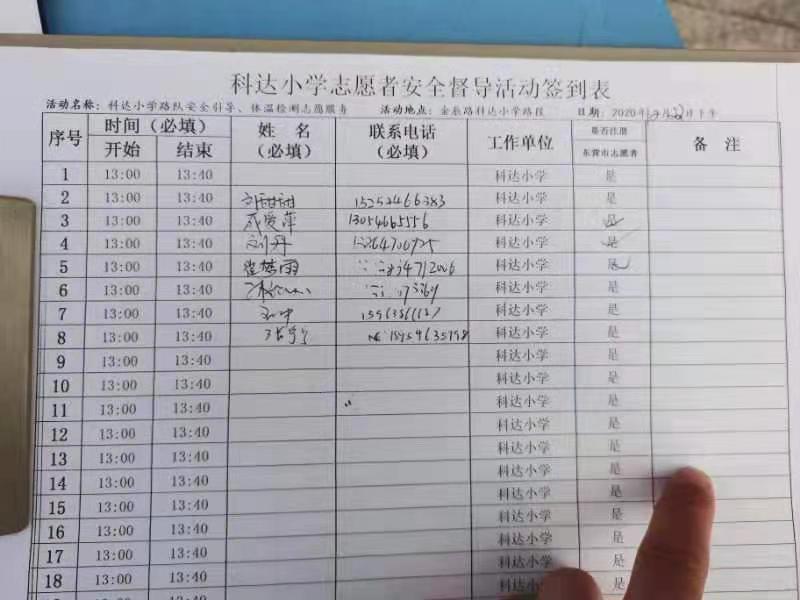 科达小学志愿者安全督导活动签到表
活动名称：科达小学路队安全引导、体温检测志愿服务 活动地点：金辰路科达小学路段 日期：2020年 月 日下午
序号 时间（必填） 姓 名（必填） 联系电话（必填） 工作单位 是否注册东营市志愿者 备 注
开始 结束
1 13:00 13:40 科达小学 是
2 13:00 13:40 刘甜甜 15252466383 科达小学 是
3 13:00 13:40 成爱萍 13054665556 科达小学 是
4 13:00 13:40 刘丹 科达小学 是
5 13:00 13:40 科达小学 是
6 13:00 13:40 科达小学 是
7 13:00 13:40 科达小学 是
8 13:00 13:40 科达小学 是
9 13:00 13:40 科达小学 是
10 13:00 13:40 科达小学 是
11 13:00 13:40 科达小学 是
12 13:00 13:40 科达小学 是
13 13:00 13:40 科达小学 是
14 13:00 13:40 科达小学 是
15 13:00 13:40 科达小学 是
16 13:00 13:40 科达小学 是
17 13:00 13:40 科达小学 是
18 13:00 13:40 科达小学 是